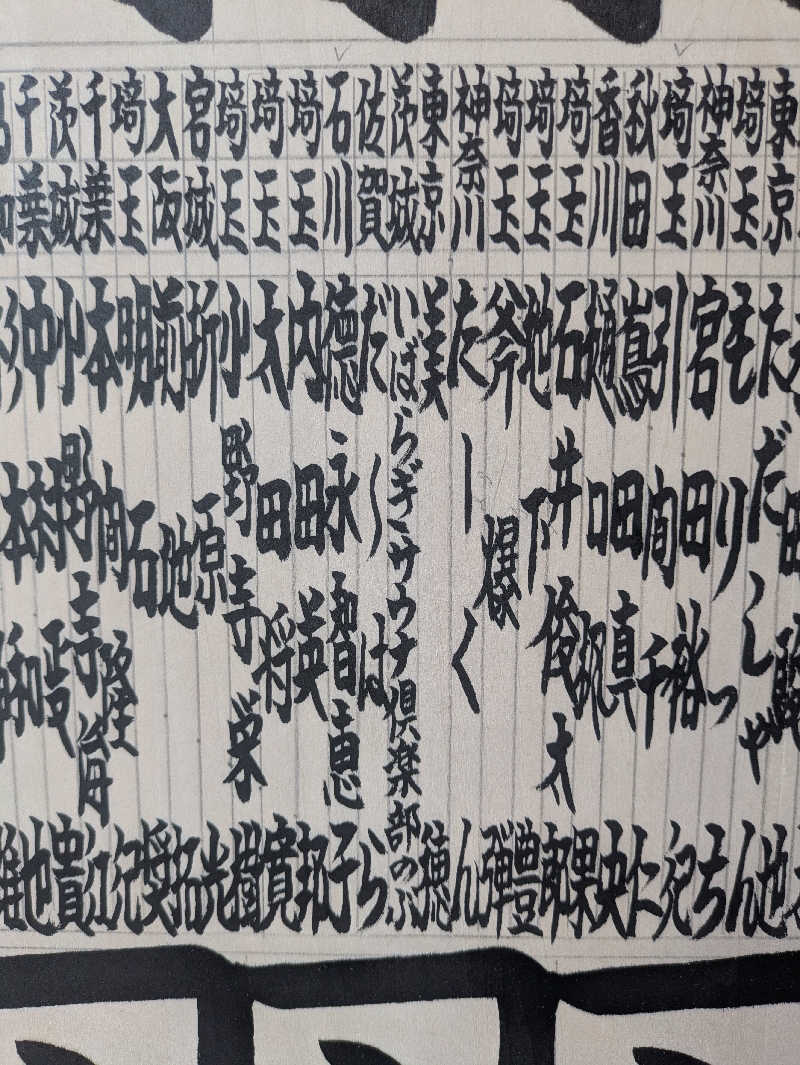 東京 ただしゃん
埼玉 もりっち
神奈川 宮田裕紀
埼玉 引間千仁
秋田 嶌田真央
香川 樋口颯果
埼玉 石井俊太郎
埼玉 地下豊
埼玉 斧爆彈
神奈川 たーくん
東京 美穂
茨城 いばらぎサウナ倶楽部の
佐賀 だ〜はら
石川 徳永智恵子
埼玉 内田英邦
埼玉 太田将寛
埼玉 小野寺栄樹
宮城 折原光
大阪 前地拓
埼玉 明石奨
千葉 本間隆紀
茨城 小野寺育江
千葉 沖村政貴
杉本和也